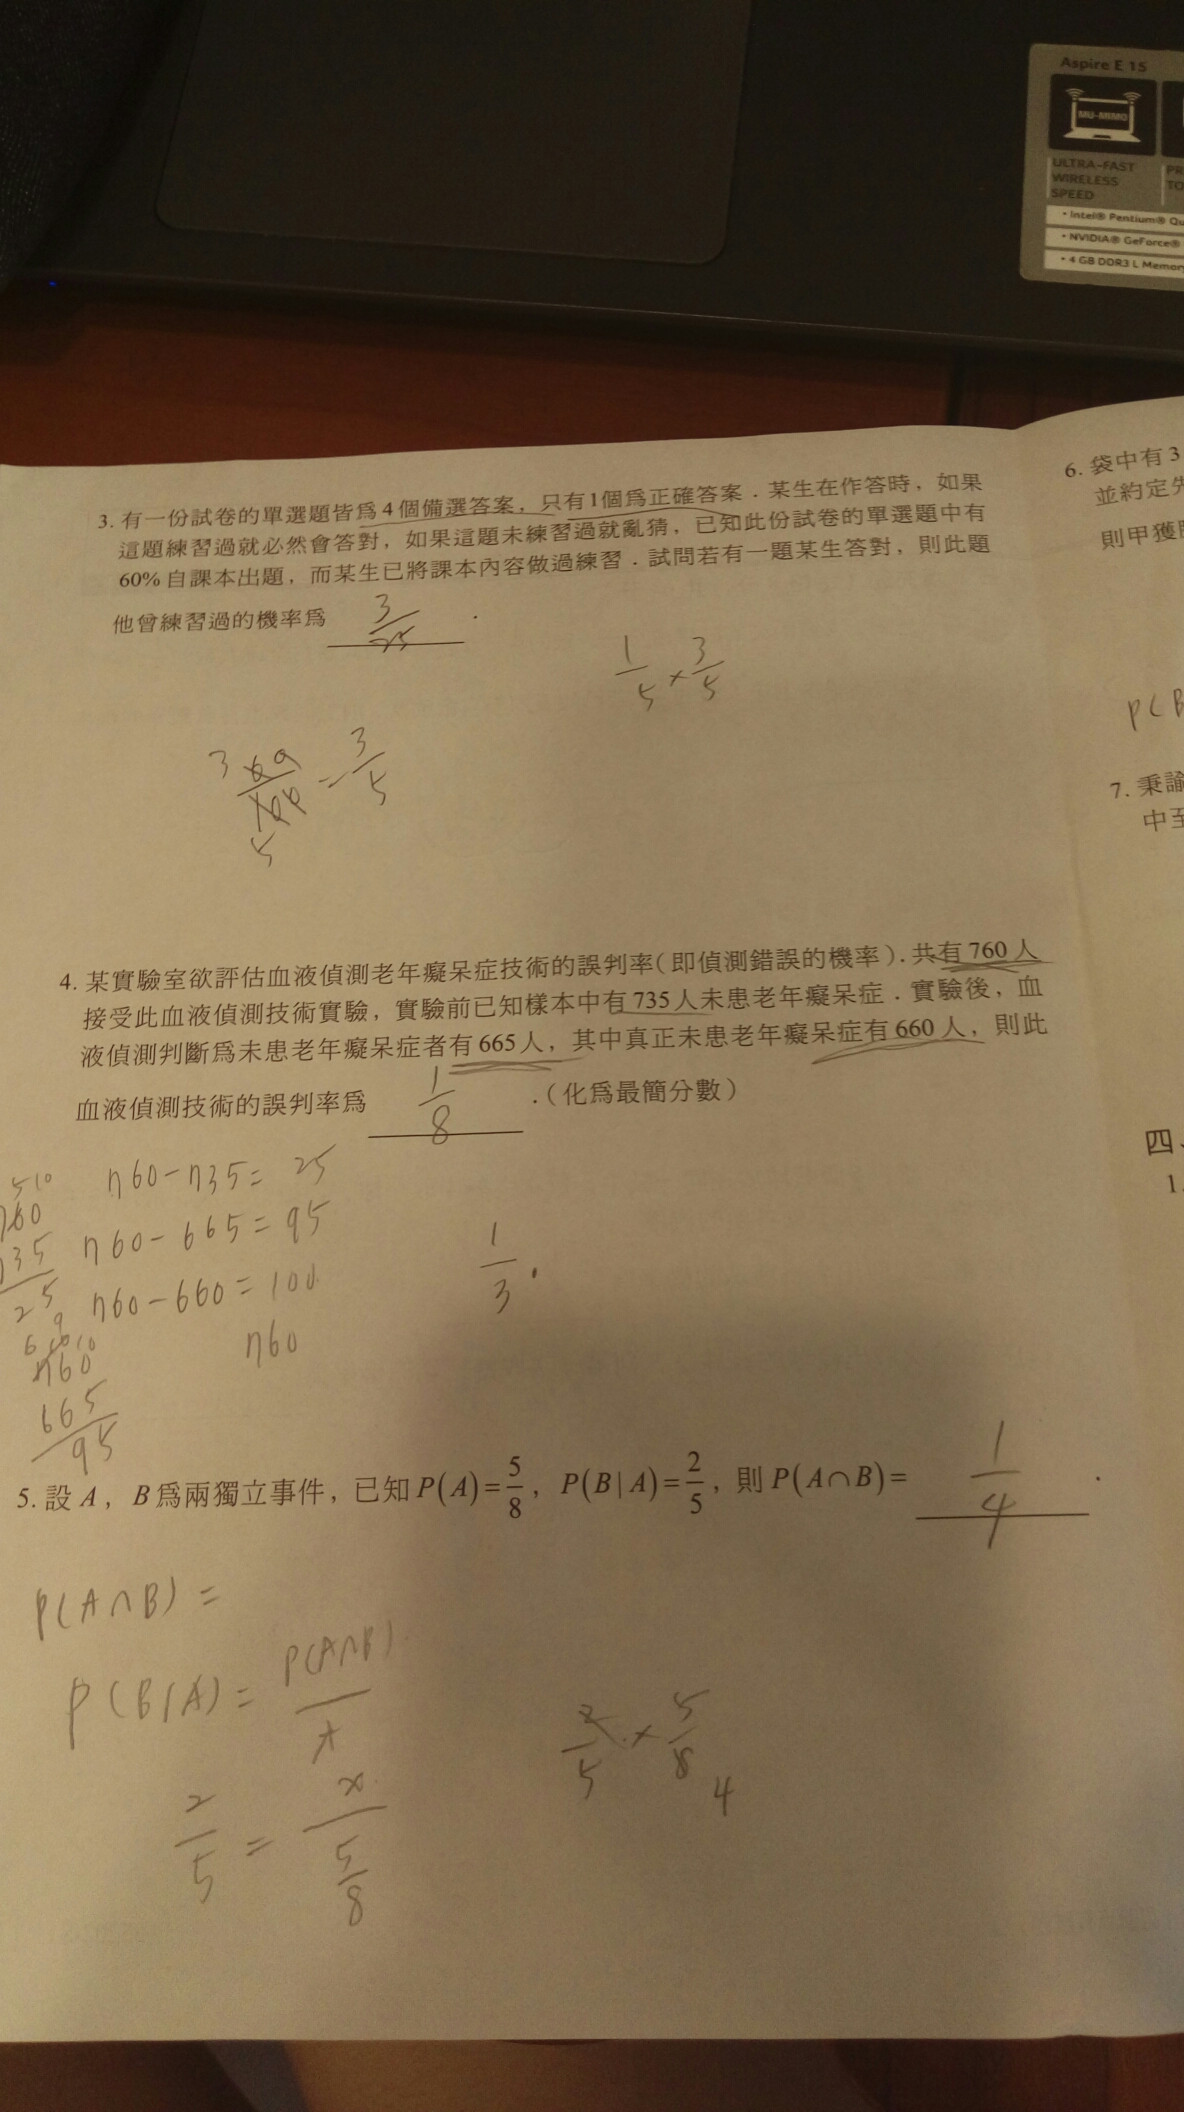 Aspire E 15
MU-MIMO
ULTRA-FAST
WIRELESS
SPEED
PR
TO
• Intel® Pentium® Qu
• NVIDIA® GeForce®
• 4 GB DDR3 L Memory
3. 有一份試卷的單選題皆為 4 個備選答案，只有1個為正確答案．某生在作答時，如果
這題練習過就必然會答對，如果這題未練習過就亂猜，已知此份試卷的單選題中有
60% 自課本出題，而某生已將課本內容做過練習．試問若有一題某生答對，則此題
他曾練習過的機率為 3/25 ．
1/5 × 3/5
3 60/100 = 3/5
5
4. 某實驗室欲評估血液偵測老年癡呆症技術的誤判率(即偵測錯誤的機率)．共有 760 人
接受此血液偵測技術實驗，實驗前已知樣本中有 735 人未患老年癡呆症．實驗後，血
液偵測判斷為未患老年癡呆症者有 665 人，其中真正未患老年癡呆症有 660 人，則此
血液偵測技術的誤判率為 1/8 ．(化為最簡分數)
760-735= 25
760-665=95
760-660=100
760
1/3
5 10
760
735
25
6 9
10
760
665
95
5. 設 A，B 為兩獨立事件，已知 P(A)=5/8，P(B|A)=2/5，則 P(A∩B)= 1/4 ．
P(A∩B) =
P(B|A) = P(A∩B)/A
2/5 = x/(5/8)
2/5 × 5/8
4
6. 袋中有 3
並約定先
則甲獲
P(B
7. 秉諭
中至
四、
1.